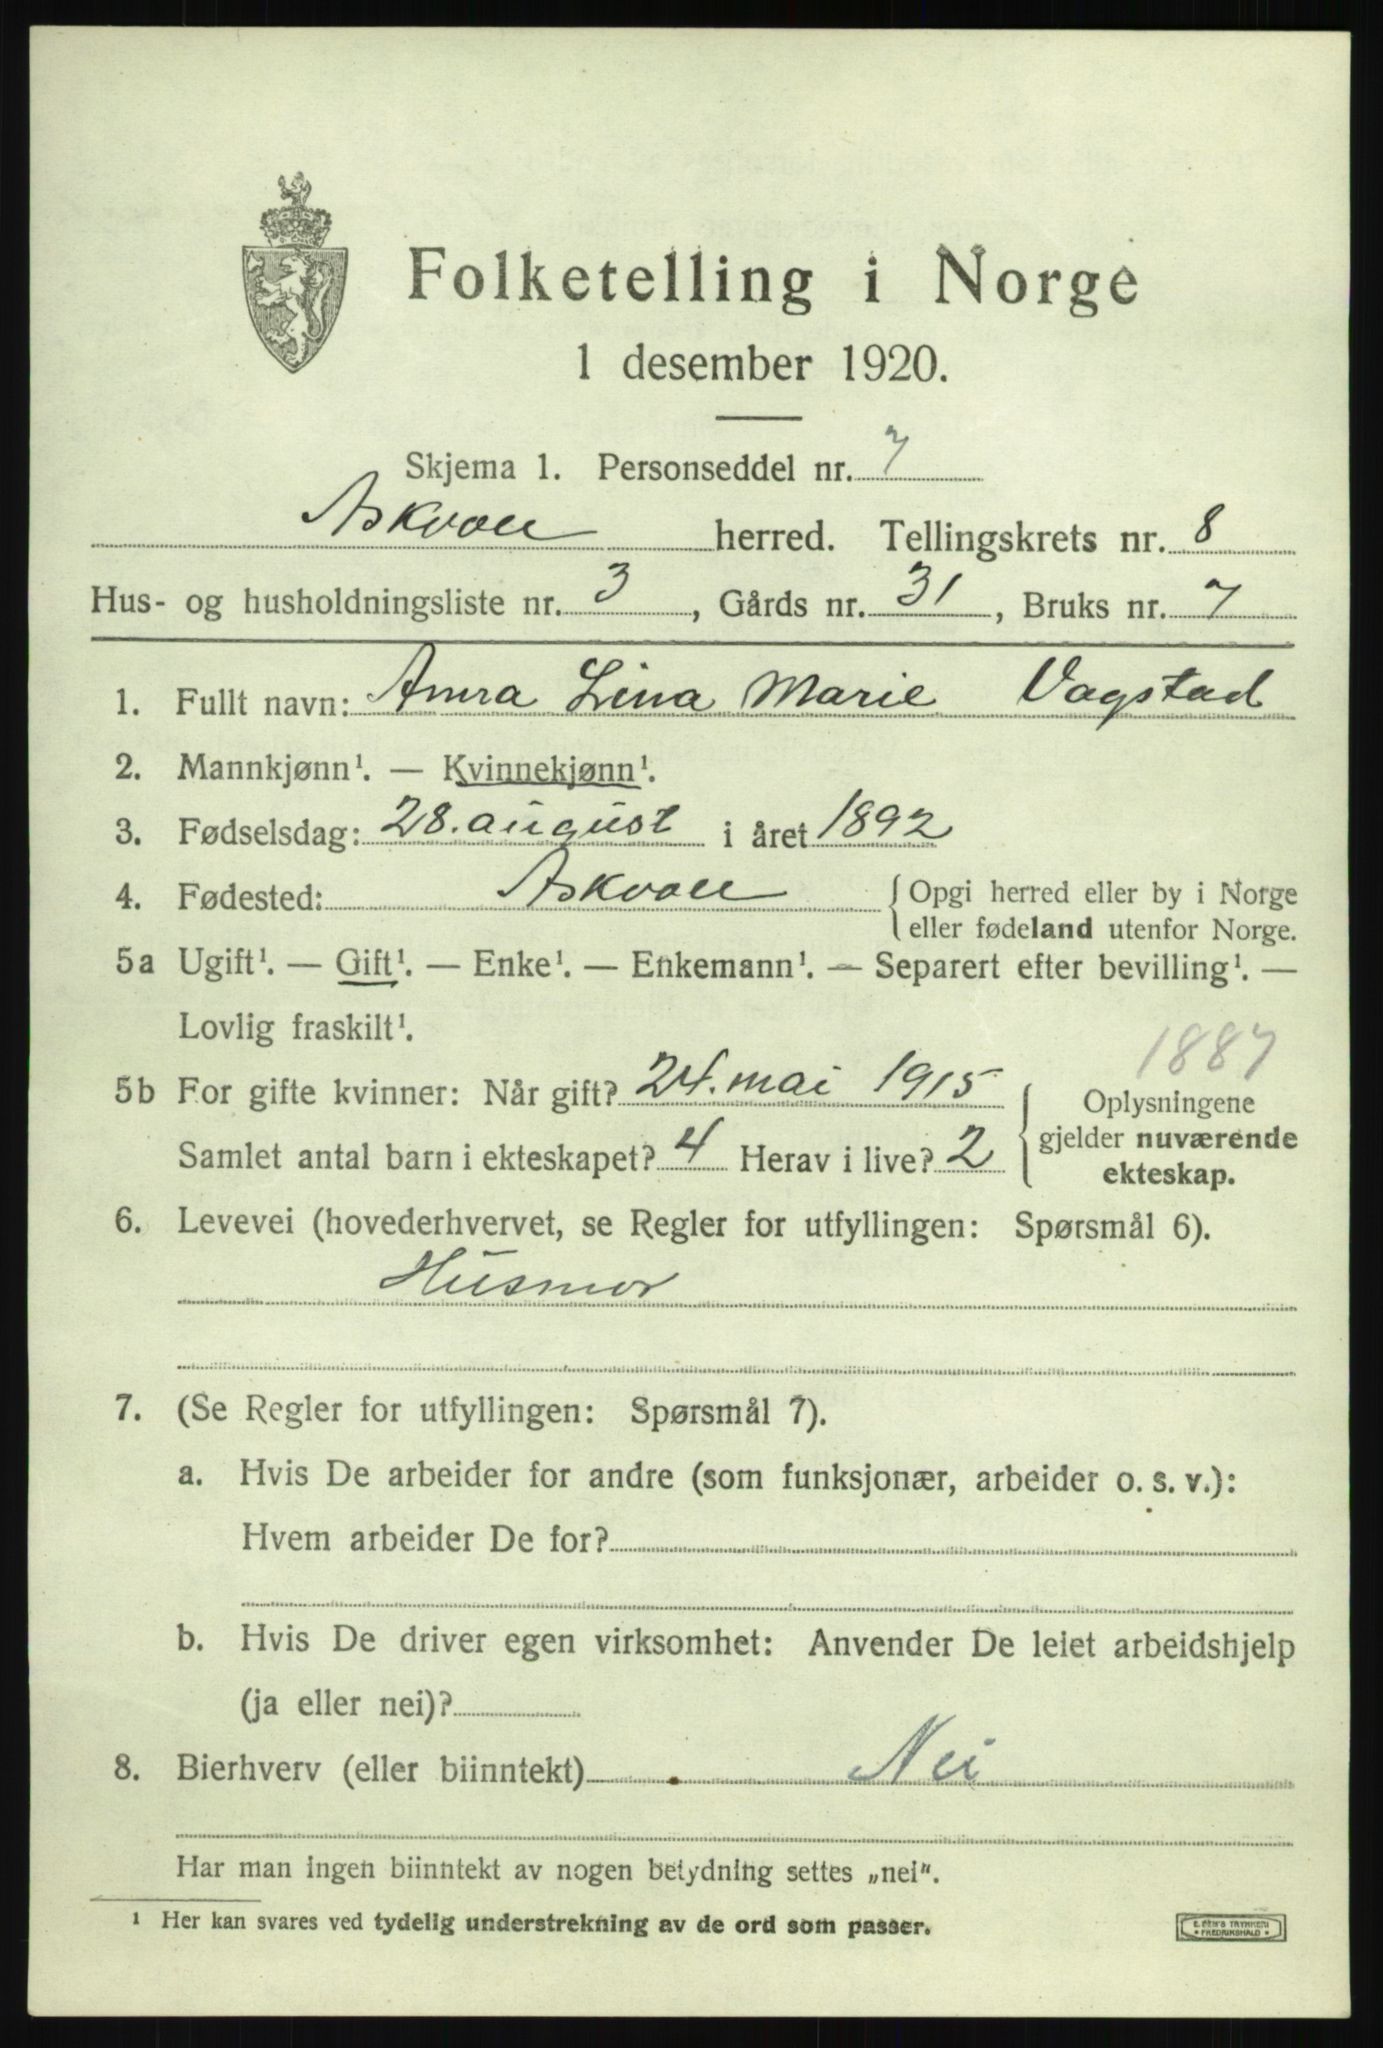 Folketelling i Norge
1 desember 1920.
Skjema 1. Personseddel nr. 7
Askvoll herred. Tellingskrets nr. 8
Hus- og husholdningsliste nr. 3, Gårds nr. 31, Bruks nr. 7
1. Fullt navn: Anna Lina Marie Vagstad
2. Mannkjønn¹. — Kvinnekjønn¹.
3. Fødselsdag: 28. august i året 1892
4. Fødested: Askvoll { Opgi herred eller by i Norge
eller fødeland utenfor Norge.
5a Ugift¹. — Gift¹. — Enke¹. — Enkemann¹. — Separert efter bevilling¹. —
Lovlig fraskilt¹.
1887
5b For gifte kvinner: Når gift? 24. mai 1915 { Oplysningene
gjelder nuværende
Samlet antal barn i ekteskapet? 4 Herav i live? 2
ekteskap.
6. Levevei (hovederhvervet, se Regler for utfyllingen: Spørsmål 6).
Husmor
7. (Se Regler for utfyllingen: Spørsmål 7).
a. Hvis De arbeider for andre (som funksjonær, arbeider o. s. v.):
Hvem arbeider De for?
b. Hvis De driver egen virksomhet: Anvender De leiet arbeidshjelp
(ja eller nei)?
8. Bierhverv (eller biinntekt) Nei
Har man ingen biinntekt av nogen betydning settes „nei".
¹ Her kan svares ved tydelig understrekning av de ord som passer.
FREDRIKSHALD